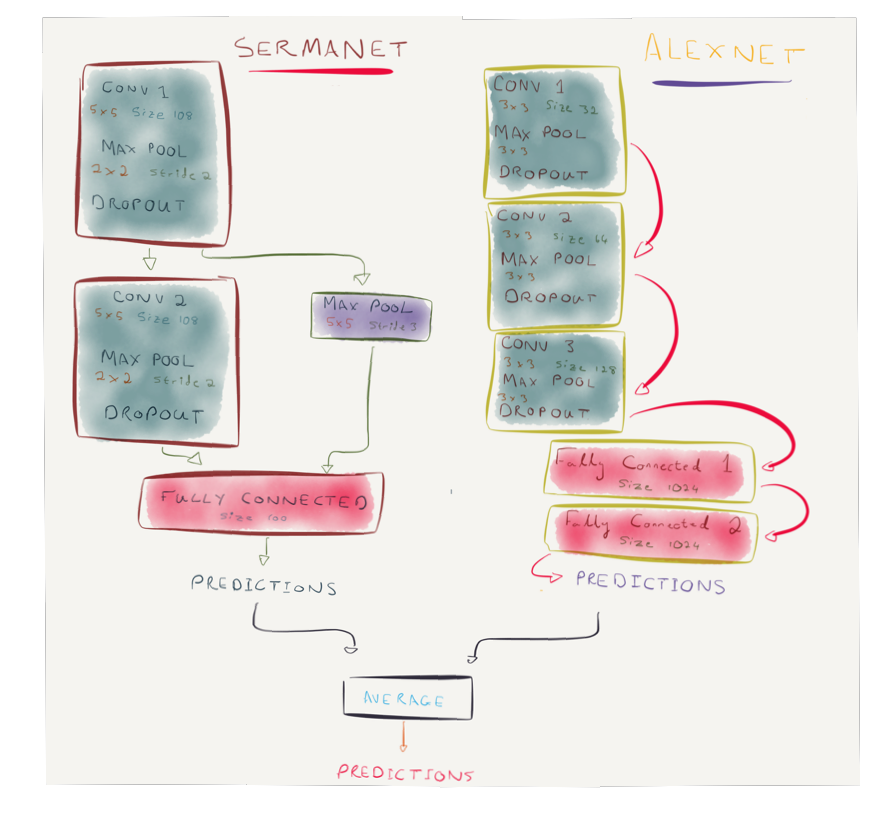 SERMANET
CONV 1
5x5 Size 108
MAX POOL
2x2 Stride 2
DROPOUT
CONV 2
5x5 Size 108
MAX POOL
2x2 Stride 2
DROPOUT
MAX POOL
5x5 Stride 3
FULLY CONNECTED
Size 100
PREDICTIONS
ALEXNET
CONV 1
3x3 Size 32
MAX POOL
3x3
DROPOUT
CONV 2
3x3 Size 64
MAX POOL
3x3
DROPOUT
CONV 3
3x3 Size 128
MAX POOL
3x3
DROPOUT
Fully Connected 1
Size 1024
Fully Connected 2
Size 1024
PREDICTIONS
AVERAGE
PREDICTIONS